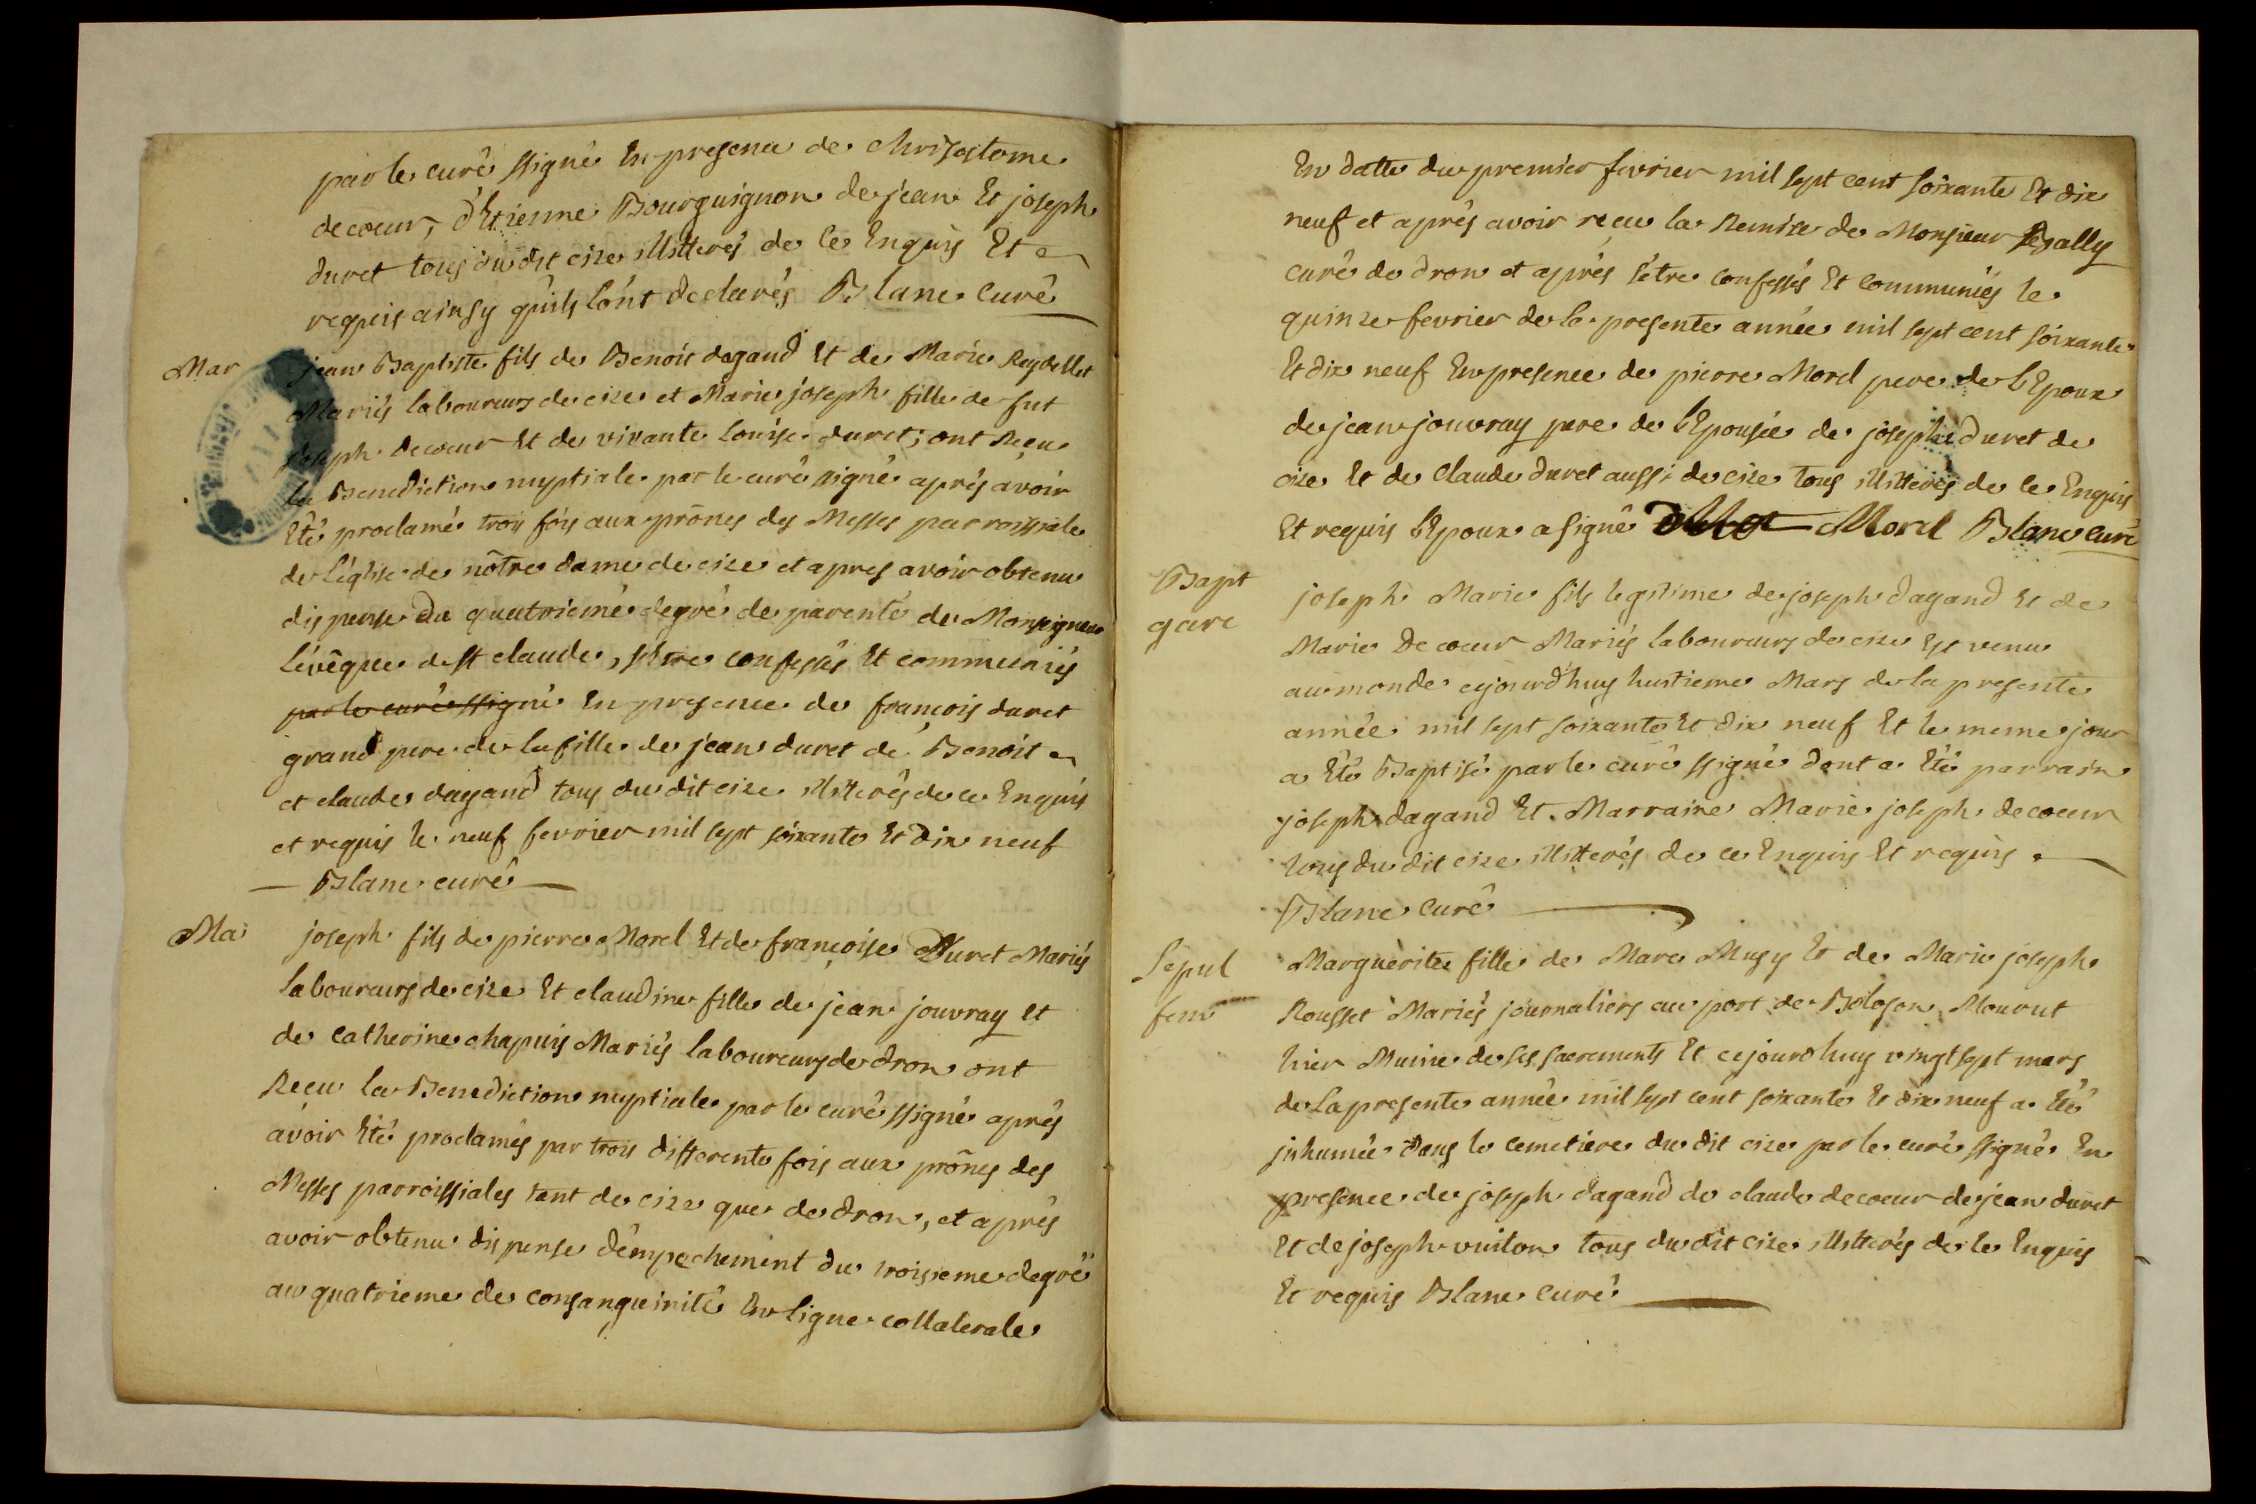 par le curé ssigné En presence de Chrisostome
decoeur, d'Etienne Bourguignon de jean Et joseph
duret tous du dit cize illitterés de ce Enquis Et
requis ainsy quils l'ont declarés Blanc Curé
Mar
jean Baptiste fils de Benoit dagand Et de Marie Reydellet
Mariés laboureurs de cize et Marie joseph fille de fut
joseph decoeur Et de vivante Louise duret; ont Reçu
la Benediction nuptiale par le curé signé aprés avoir
Eté proclamé trois fois aux prônes des Messes parroissiale
de L'église de nôtre dame de cize et apres avoir obtenu
dispense du quatriemé degré de parenté de Monseigneur
L'évêque de st claude, s'être confessés Et communiés
par le curé ssigné En presence de francois duret
grand pere de la fille de jean duret de Benoit
et claude dagand tous du dit cize illiterés de ce Enquis
et requis le neuf fevrier mil sept soixante Et dix neuf
Blanc curé
Ma
joseph fils de pierre Morel Et de françoise Duret Mariés
laboureurs de cize Et claudine fille de jean jouvray Et
de Catherine chapuis Mariés laboureurs de dron ont
Reçu la Benediction nuptiale par le curé ssigné aprés
avoir Eté proclamés par trois differente fois aux prônes des
Messes parroissiales tant de cize que de dron, et aprés
avoir obtenu dispense d'émpechement du troisieme degré
au quatrieme de consanguinité En ligne collaterale
En datte du premier fevrier mil sept cent soixante Et dix
neuf et aprés avoir recu la Remise de Monsieur
curé de dron et aprés s'être confessés Et communiés le
quinze fevrier de la presente année mil sept cent soixante
Et dix neuf En presence de pierre Morel pere de l'Epoux
de jean jouvray pere de l'Epousée de joseph duret de
cize Et de Claude duret aussi de cize tous illitterés de ce Enquis
Et requis l'Epoux a signé Morel Blanc curé
Bapt
garc
joseph Marie fils legitime de joseph dagand Et de
Marie Decoeur Mariés laboureurs de cize Est venu
au monde cejourd'huy huitieme Mars de la presente
année mil sept soixante Et dix neuf Et le meme jour
a Eté Baptisé par le curé ssigné dont a Eté parrain
joseph dagand Et Marraine Marie joseph decoeur
tous du dit cize illitterés de ce Enquis Et requis
Blanc Curé
Sepul
fem
Marguerite fille de Marc Musy Et de Marie joseph
Rousset Mariés journaliers au port de Boloson Mourut
hier Munie de ses sacrements Et cejourdhuy vingt sept mars
de La presente année mil sept cent soixante Et dix neuf a Eté
jnhumée dans le cemetiere du dit cize par le curé ssigné En
presence de joseph dagand de claude decoeur de jean duret
Et de joseph vuiton tous du dit cize illitterés de ce Enquis
Et requis Blanc Curé